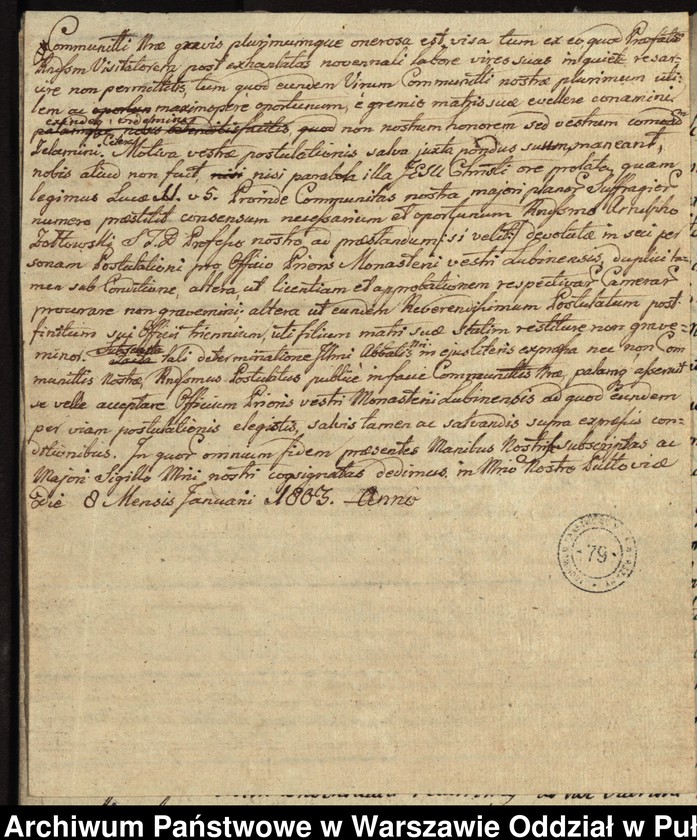 Communitti Nrae gravis plurimumque onerosa est visa tum ex eo quod Praefatum
Rndssm Visitatorem post exhaustas novennali labore vires suas in quiete resar-
cire non permittetis, tum quod eundem Virum Communitti nostrae plurimum uti-
lem ac maximopere oportunum, e gremio matris suae evellere conamini
non nostrum honorem sed vestrum comodum
Zelamini. Caetera Motiva vestrae postulationis salva juxta pondus suum maneant,
nobis aliud non fuit nisi parabola illa JESU Christi ore prolata, quam
legimus Lucae v 5. Proinde Communitas nostra majori planor Suffragior
numero praestitit consensum necessarium et oportunum Rndssmo Arnulpho
Zołtowski S T D Professo nostro, ad praestandum, si velit, devolutae in sui per
sonam Postulationi pro Officio Prioris Monasterii vestri Lubinensis, duplici ta-
men sub Conditione, altera ut licentiam et approbationem respectivar Camerar
procurare non gravemini: altera ut eundem Reverendissimum Postulatum post
finitum sui Officii triennium, uti filium matri suae statim restituere non grave=
mini. Tali determinatione Illmi Abbatis Nri in ejus literis expressa nec non Com
munittis Nostrae, Rndssmus Postulatus publice in facie Communittis Nrae, palamq asseruit
se velle acceptare Officium Prioris vestri Monasterii Lubinensis ad quod Eundem
per viam postulationis elegistis, salvis tamen ac salvandis supra expressis con-
ditionibus. In quor omnium fidem praesentes Manibus Nostris subscriptas ac
Majori Sigillo Mrii nostri cosignatas dedimus in Mrio Nostro Pultoviae
Die 8 Mensis Januarii 1803. Anno
79
Archiwum Państwowe w Warszawie Oddział w Puł